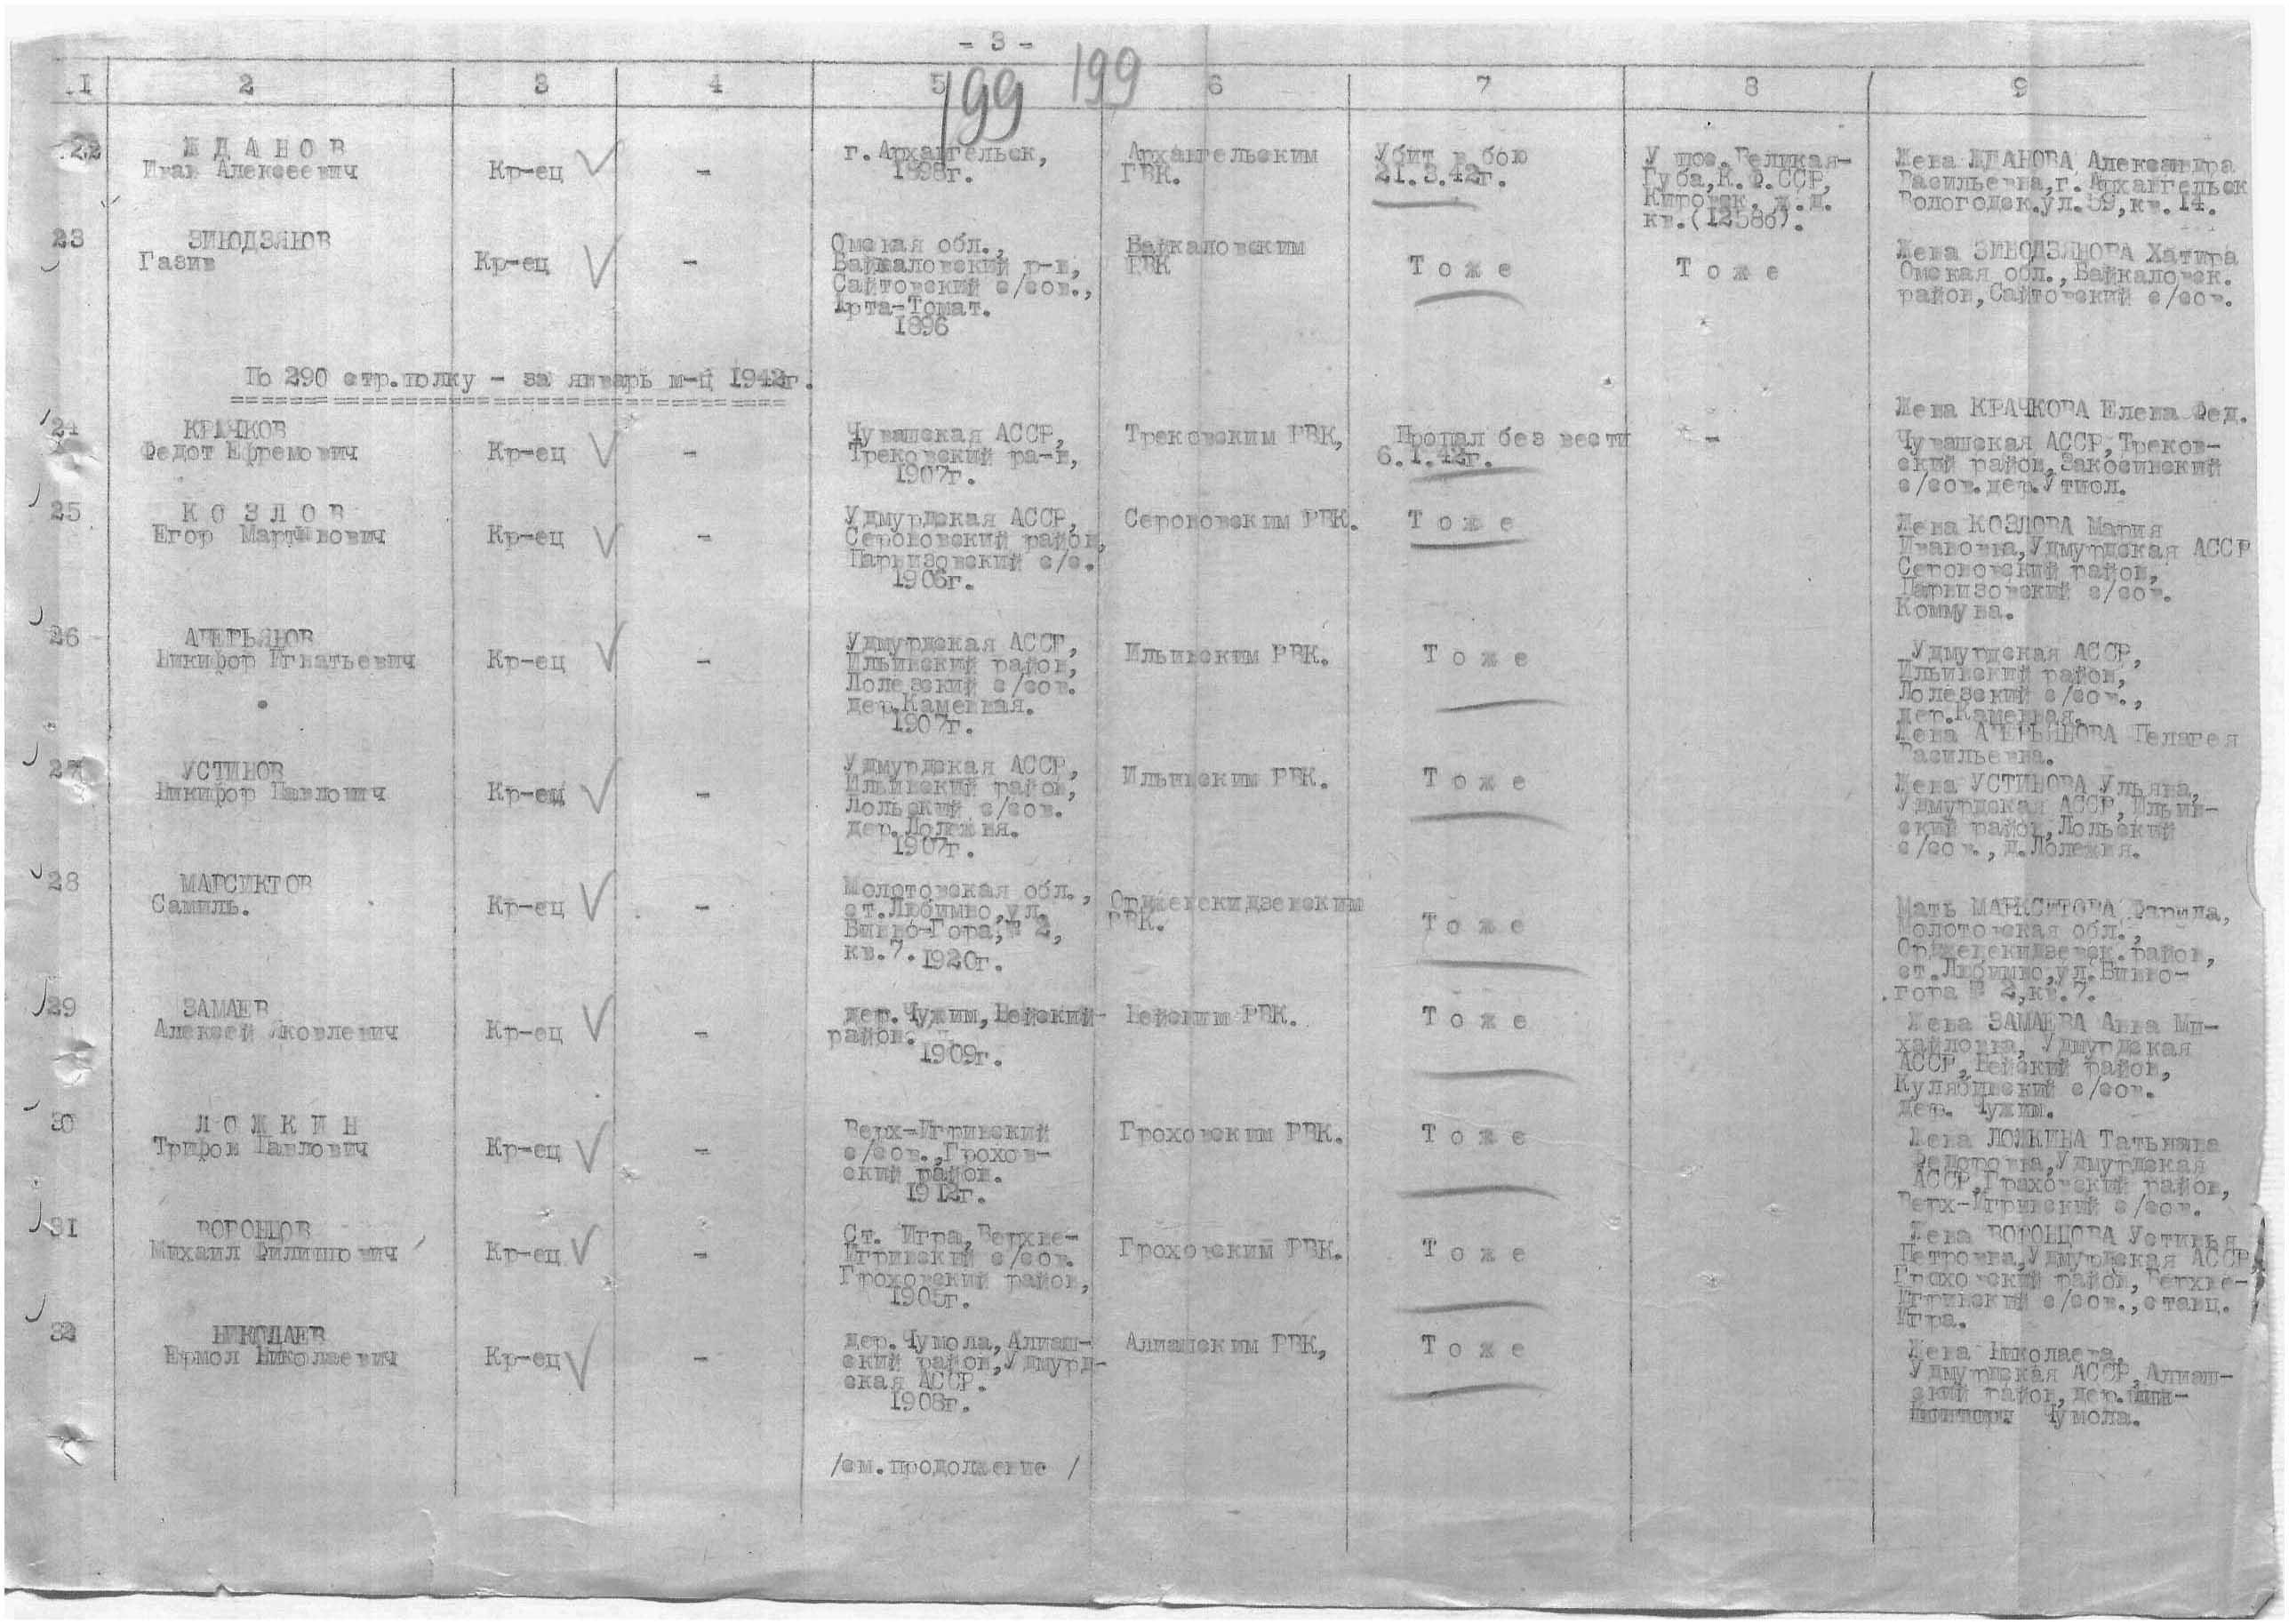 - 3 -
199 199
I 2 3 4 5 6 7 8 9
22
Ж Д А Н О В
Иван Алексеевич
Кр-ец
-
г. Архангельск,
1898г.
Архангельским
ГВК.
Убит в бою
21.3.42г.
У пос. Великая-
Губа, К.Ф.ССР,
Кировск. ж.д.
кв.(1258б).
Жена ЖДАНОВА Александра
Васильевна, г. Архангельск
Вологодск.ул.59, кв. 14.
23
ЗИЮДЗЯНОВ
Газив
Кр-ец
-
Омская обл.,
Байкаловский р-н,
Сайтовский с/сов.,
Арта-Томат.
1896
Байкаловским
РВК
Т о ж е
Т о ж е
Жена ЗИЮДЗЯНОВА Хатира
Омская обл., Байкаловск.
район, Сайтовский с/сов.
По 290 стр.полку - за январь м-ц 1942г.
24
КРАЧКОВ
Федот Ефремович
Кр-ец
-
Чувашская АССР,
Трековский ра-н,
1907г.
Трековским РВК,
Пропал без вести
6.1.42г.
-
Жена КРАЧКОВА Елена Фед.
Чувашская АССР, Треков-
ский район, Закосинский
с/сов. дер. Утиол.
25
К О З Л О В
Егор Мартынович
Кр-ец
-
Удмурдская АССР,
Сероновский район,
Парнизовский с/с.
1906г.
Сероновским РВК.
Т о ж е
Жена КОЗЛОВА Мария
Ивановна, Удмурдская АССР
Сероновский район,
Парнизовский с/сов.
Коммуна.
26
АВЕРЬЯНОВ
Никифор Игнатьевич
Кр-ец
-
Удмурдская АССР,
Ильинский район,
Лолезский с/сов.
дер.Каменная.
1907г.
Ильинским РВК.
Т о ж е
Удмурдская АССР,
Ильинский район,
Лолезский с/сов.,
дер.Каменная.
Жена АВЕРЬЯНОВА Пелагея
Васильевна.
27
УСТИНОВ
Никифор Павлович
Кр-ец
-
Удмурдская АССР,
Ильинский район,
Лольский с/сов.
дер. Лолежня.
1907г.
Ильинским РВК.
Т о ж е
Жена УСТИНОВА Ульяна,
Удмурдская АССР, Ильин-
ский район, Лольский
с/сов., д.Лолежня.
28
МАРСИКТОВ
Самиль.
Кр-ец
-
Молотовская обл.,
ст.Любимво, ул.
Винно-Гора, № 2,
кв.7. 1920г.
Орженекидзевским
РВК.
Т о ж е
Мать МАРКСИТОВА Фарида,
Молотовская обл.,
Орженекидзевск. район,
ст.Любимво, ул.Винно-
гора № 2, кв.7.
29
ЗАМАЕВ
Алексей Яковлевич
Кр-ец
-
дер. Чужим, Нейский-
район.
1909г.
Нейским РВК.
Т о ж е
Жена ЗАМАЕВА Анна Ми-
хайловна, Удмурдская
АССР, Нейский район,
Кулябинский с/сов.
дер. Чужим.
30
Л О Ж К И Н
Трифон Павлович
Кр-ец
-
Верх-Игринский
с/сов., Грохов-
ский район.
1912г.
Гроховским РВК.
Т о ж е
Жена ЛОЖКИНА Татьяна
Федоровна, Удмурдская
АССР, Граховский район,
Верх-Игринский с/сов.
31
ВОРОНЦОВ
Михаил Филиппович
Кр-ец
-
Ст. Игра, Верхне-
Игринский с/сов.
Гроховский район,
1905г.
Гроховским РВК.
Т о ж е
Жена ВОРОНЦОВА Устинья
Петровна, Удмурдская АССР,
Гроховский район, Верхне-
Игринский с/сов., станц.
Игра.
32
НИКОЛАЕВ
Ермол Николаевич
Кр-ец
-
дер. Чумола, Алнаш-
ский район, Удмурд-
ская АССР.
1908г.
Алнашским РВК,
Т о ж е
Жена Николаева,
Удмурдская АССР, Алнаш-
ский район, дер.
Чумола.
/см.продолжение /